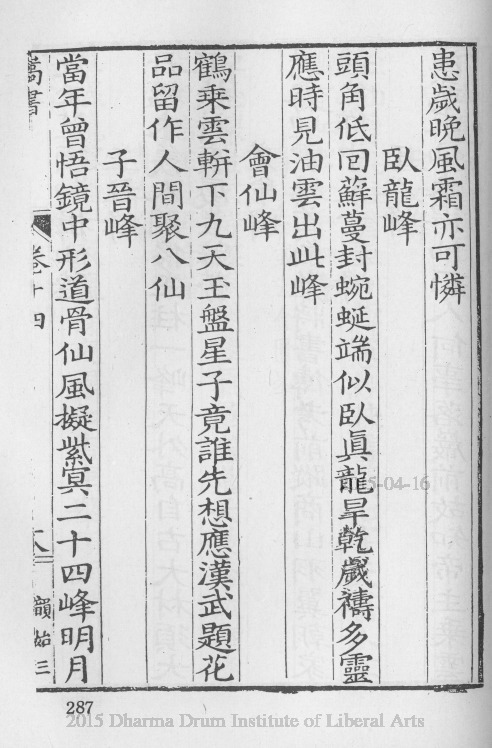 患歲晚風霜亦可憐
臥龍峰
頭角低回蘚蔓封蜿蜒端似臥眞龍旱乾歲禱多靈
應時見油雲出此峰
會仙峰
鶴乘雲輧下九天玉盤星子竟誰先想應漢武題花
品留作人間聚八仙
子晉峰
當年曾悟鏡中形道骨仙風擬紫冥二十四峰明月
嵩書
卷十四
韻始三
287
2015 Dharma Drum Institute of Liberal Arts